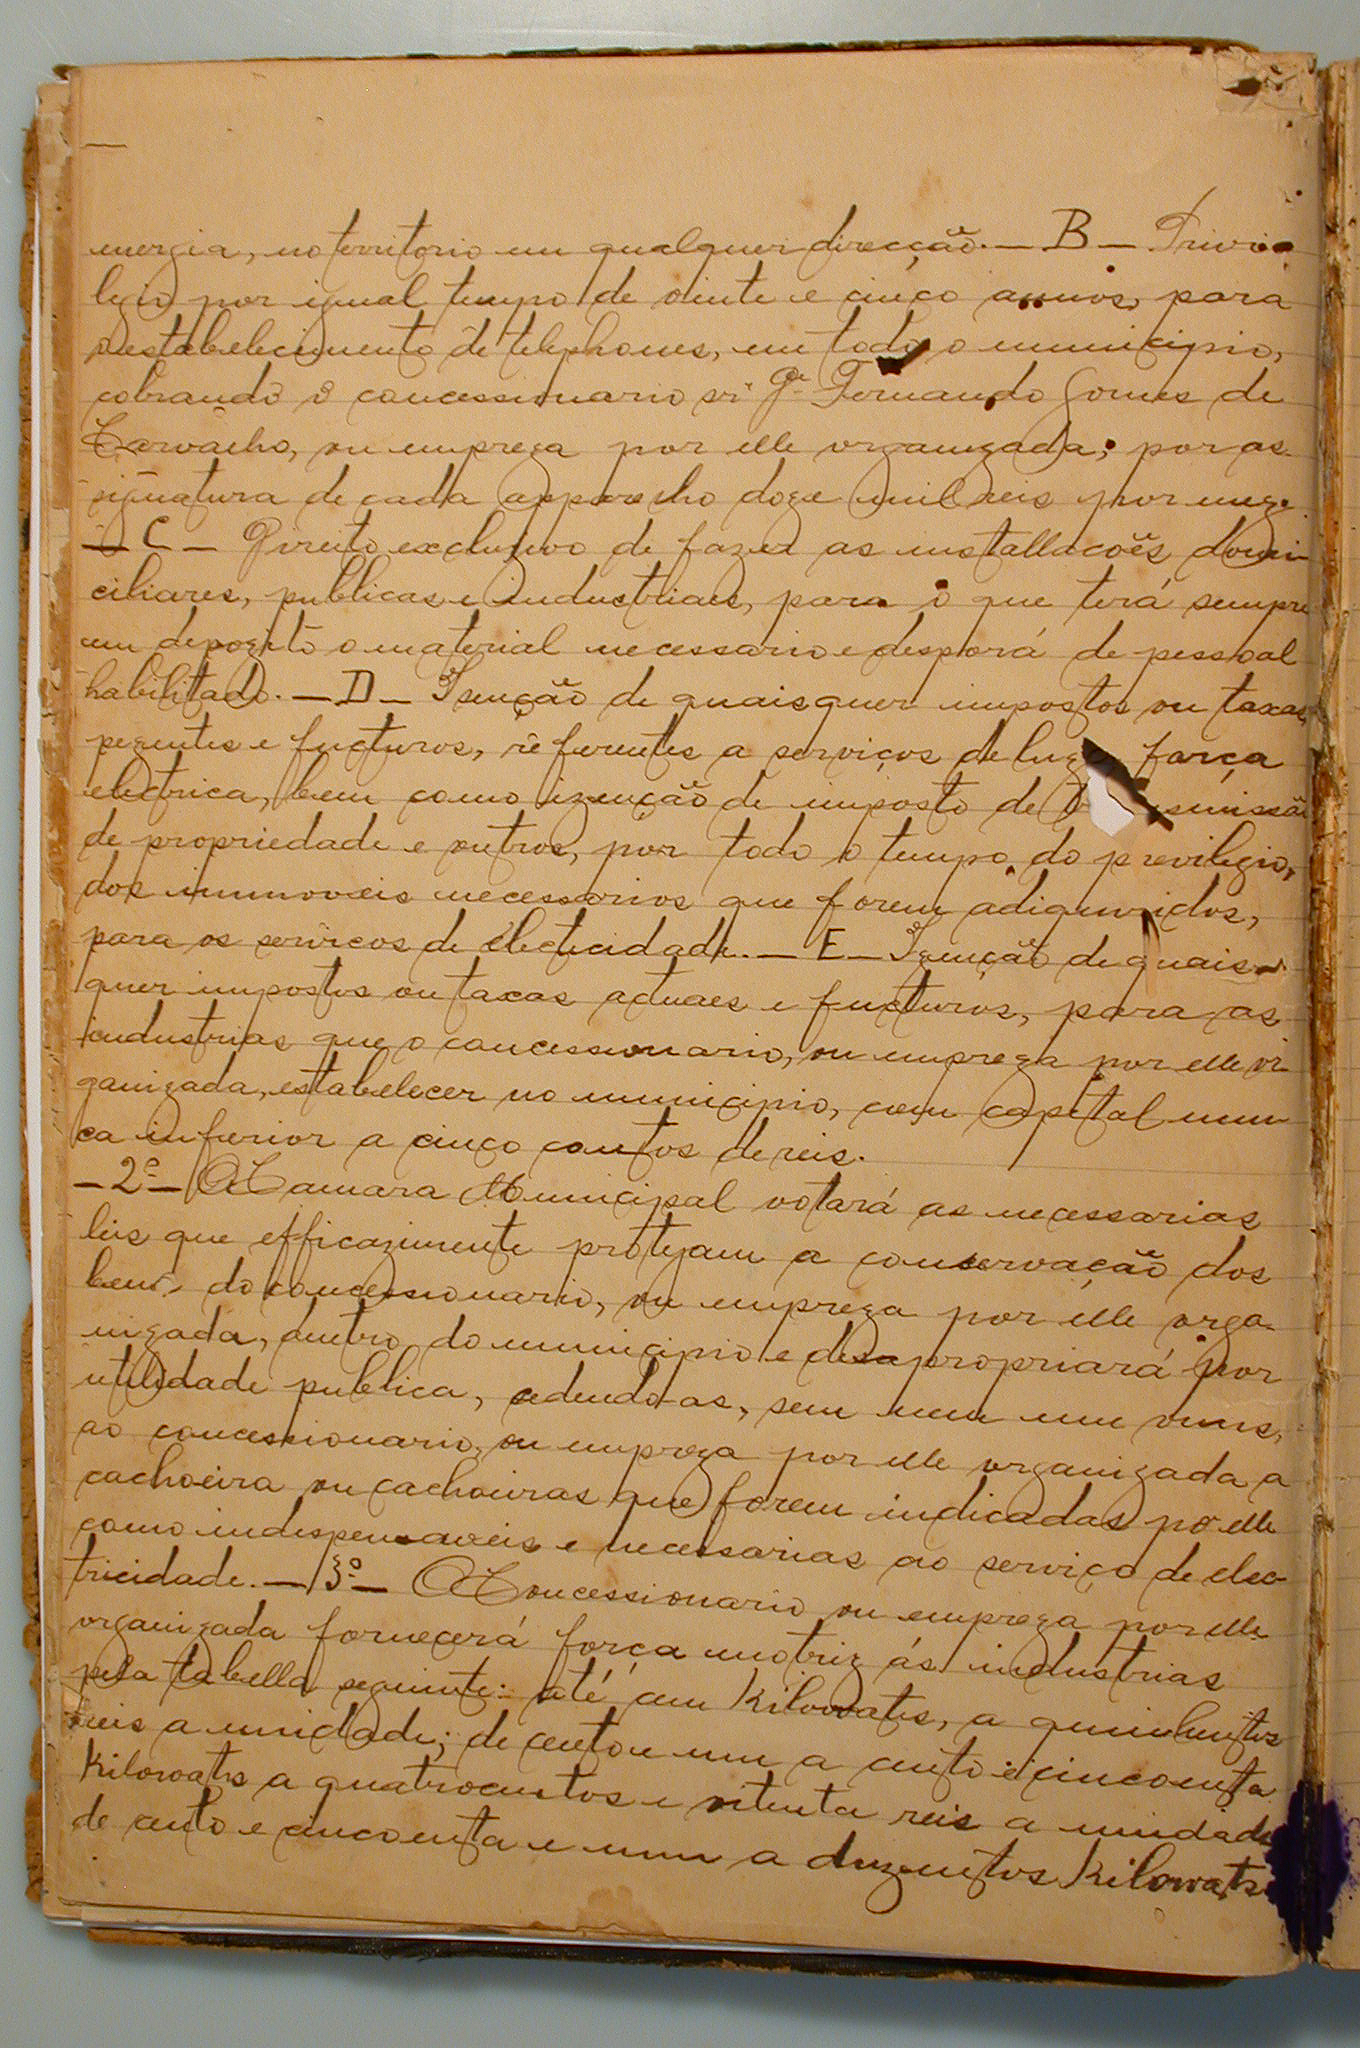 energia, no territorio em qualquer direcção. — B — Privi-
legio por igual tempo de vinte e cinco annos, para
o estabelecimento de telephones, em todo o municipio,
cobrando o concessionario Fernando Gomes de
Carvalho, ou empreza por elle organizada; por as-
signatura de cada apparelho doze mil reis por mez.
— C — Direito exclusivo de fazer as installacões domi-
ciliares, publicas e industriaes, para o que terá sempre
em depozito o material necessario e desporá de pessoal
habilitado. — D — Isenção de quaisquer impostos ou taxas,
pezentes e fucturos, referentes a serviços de luz força
electrica, bem como izenção de imposto de transmissão
de propriedade e outros, por todo o tempo do previlegio,
dos immoveis necessarios que forem adiqueridos,
para os servicos de electicidade. — E — Izenção de quais-
quer impostos ou taxas actuaes e fucturos, para as
industrias que o concessionario, ou empreza por elle or
ganizada, estabelecer no municipio, com capital nun
ca inferior a cinco contos de reis.
— 2º — A Camara Municipal votará as necessarias
leis que efficazimente protejam a conservação dos
bens do concessionario, ou empreza por elle orga-
nizada, dentro do municipio e desapropriará por
utilidade publica, cedendo-as, sem nem um onus,
ao concessionario, ou empreza por elle organizada a
cachoeira ou cachoeiras que forem indicadas por elle
como indispensaveis e necessarias ao serviço de elec-
tricidade. — 3º — O Concessionario ou empreza por elle
organizada fornecerá força motriz ás industrias
pela tabella seguinte: até cem Kilowats, a quinhentos
reis a unidade; de cento e um a cento e cincoenta
Kilowats a quatrocentos e oitenta reis a unidade
de cento e cincoenta e um a duzentos Kilowats